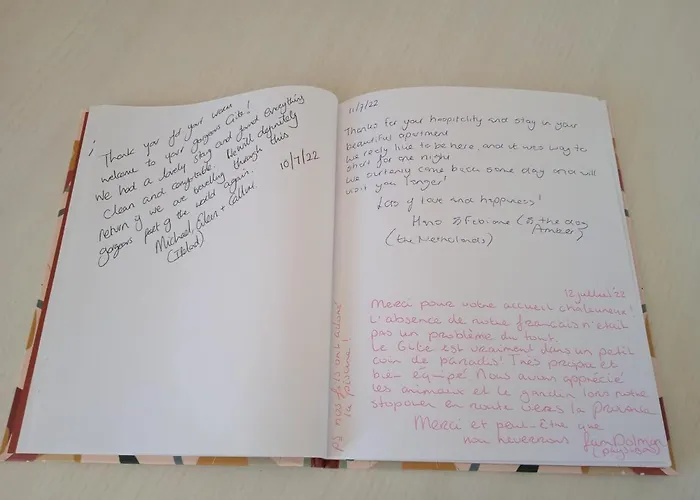 Thank you for your warm
welcome to your gorgeous Gite!
We had a lovely stay and found everything
clean and comfortable. We will definitely
return if we are travelling through this
gorgeous part of the world again.
10/7/22
Michael, Eileen + Callum.
(Ireland)
11/7/22
Thanks for your hospitality and stay in your
beautiful apartment
We realy like to be here, and it was way to
short for one night
We certenly come back some day and will
visit you longer!
Lots of love and happiness!
Hans & Febiane (& the dog
Amber)
(the Netherlands)
12 juillet '22
Merci pour votre accueil chaleureux!
L'absence de notre français n'était
pas un problème du tout.
Le Gîte est vraiment dans un petit
coin de paradis! Très propre et
bien éq-pé. Nous avons apprécié
les animaux et le gardin lors notre
stopover en route vers la Provence
Merci et peut-être que
nous reverrons fam Dolman
(pays-bas)
PS nos fils ont adoré
la piscine!